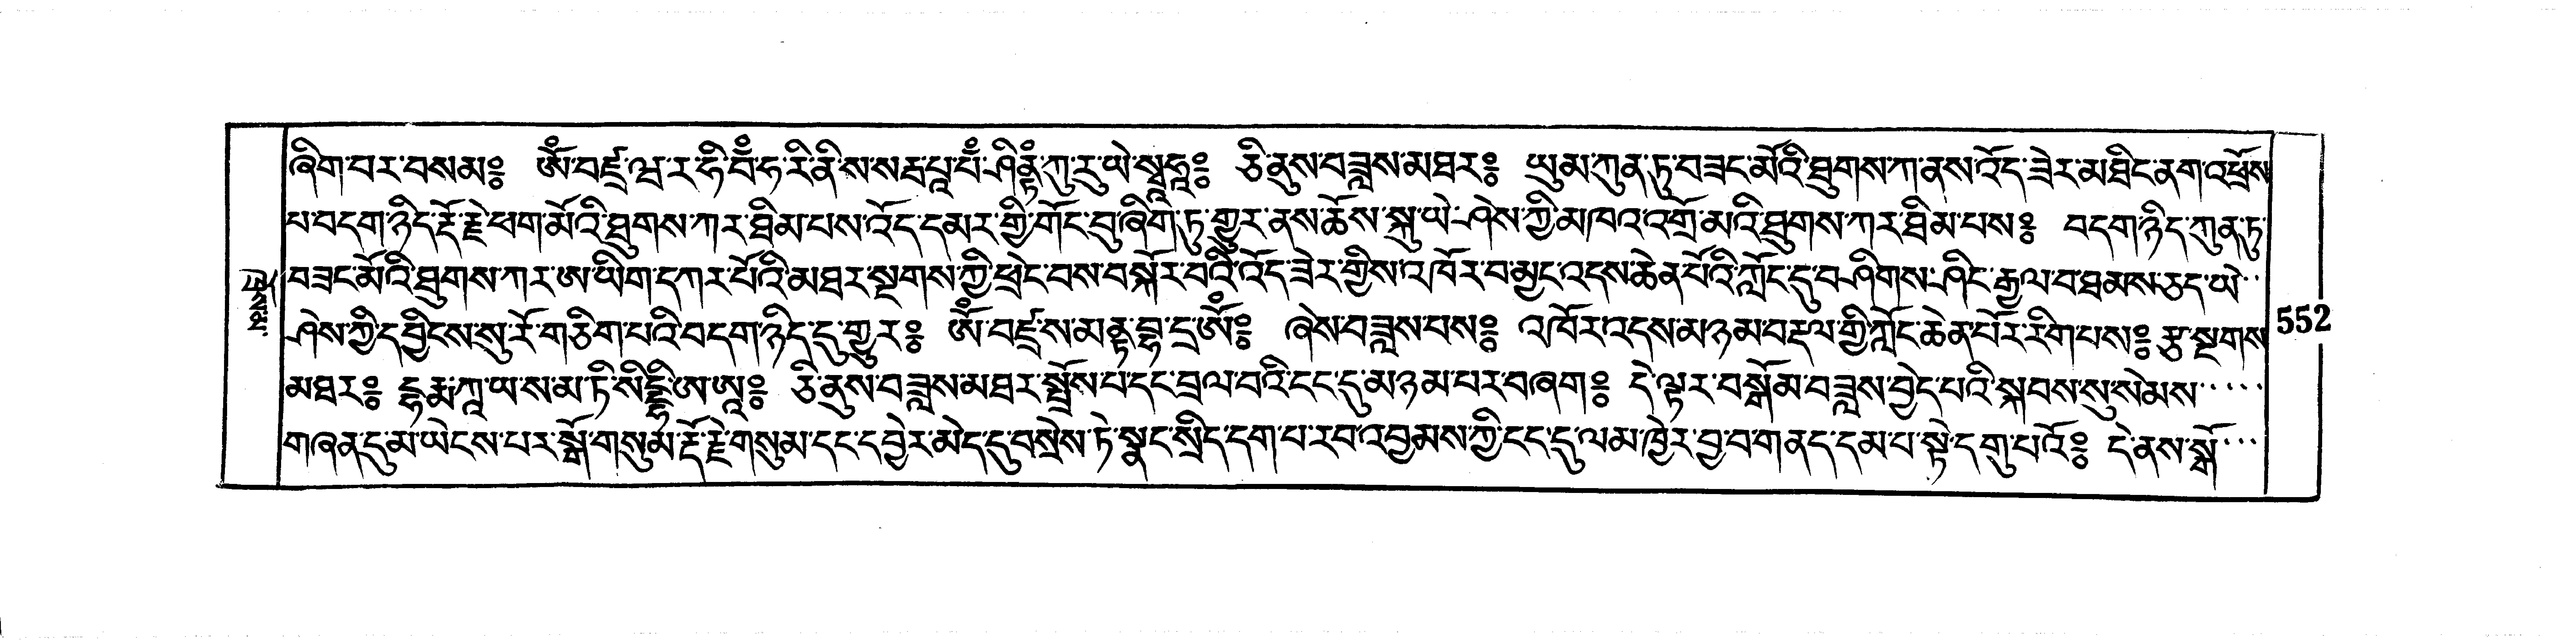 ཞིག་བར་བསམ༔ ཨོཾ་བཛྲ་ཝཱ་ར་ཧི་བཾ་ཧ་རི་ནི་ས་སརྦ་པཱ་པཾ་ཤིནྟཾ་ཀུ་རུ་ཡེ་སྭཱཧཱ༔ ཅི་ནུས་བཟླས་མཐར༔ ཡུམ་ཀུན་ཏུ་བཟང་མོའི་ཐུགས་ཀ་ནས་འོད་ཟེར་མཐིང་ནག་འཕྲོས
པ་བདག་ཉིད་རྡོ་རྗེ་ཕག་མོའི་ཐུགས་ཀར་ཐིམ་པས་འོད་དམར་གྱི་གོང་བུ་ཞིག་ཏུ་གྱུར་ནས་ཆོས་སྐུ་ཡེ་ཤེས་ཀྱི་མཁའ་འགྲོ་མའི་ཐུགས་ཀར་ཐིམ་པས༔ བདག་ཉིད་ཀུན་ཏུ་
བཟང་མོའི་ཐུགས་ཀར་ཨ་ཡིག་དཀར་པོའི་མཐར་སྔགས་ཀྱི་ཕྲེང་བས་བསྐོར་བའི་འོད་ཟེར་གྱིས་འཁོར་བ་མྱང་འདས་ཆེན་པོའི་ཀློང་དུ་བཤིགས་ཤིང་རྒྱལ་བ་ཐམས་ཅད་ཡེ་
ཤེས་ཀྱི་དབྱིངས་སུ་རོ་གཅིག་པའི་བདག་ཉིད་དུ་གྱུར༔ ཨོཾ་བཛྲ་ས་མནྟ་བྷ་དྲ་ཨོཾ༔ ཞེས་བཟླས་པས༔ འཁོར་འདས་མཉམ་བརྡལ་གྱི་ཀློང་ཆེན་པོར་རིག་པས༔ རྩ་སྔགས
མཐར༔ དྷརྨ་ཀཱ་ཡ་ས་མ་ཏི་སིདྡྷི་ཨ་ཨཱ༔ ཅི་ནུས་བཟླས་མཐར་སྤྲོས་པ་དང་བྲལ་བའི་ངང་དུ་མཉམ་པར་བཞག༔ དེ་ལྟར་བསྒོམ་བཟླས་བྱེད་པའི་སྐབས་སུ་སེམས་
གཞན་དུ་མ་ཡེངས་པར་སྒོ་གསུམ་རྡོ་རྗེ་གསུམ་དང་དབྱེར་མེད་དུ་བསྲེས་ཏེ་སྣང་སྲིད་དག་པ་རབ་འབྱམས་ཀྱི་ངང་དུ་ལམ་ཁྱེར་བྱ་བ་གནད་དམ་པ་སྟེ་དགུ་པའོ༔ དེ་ནས་སྒོ་
552